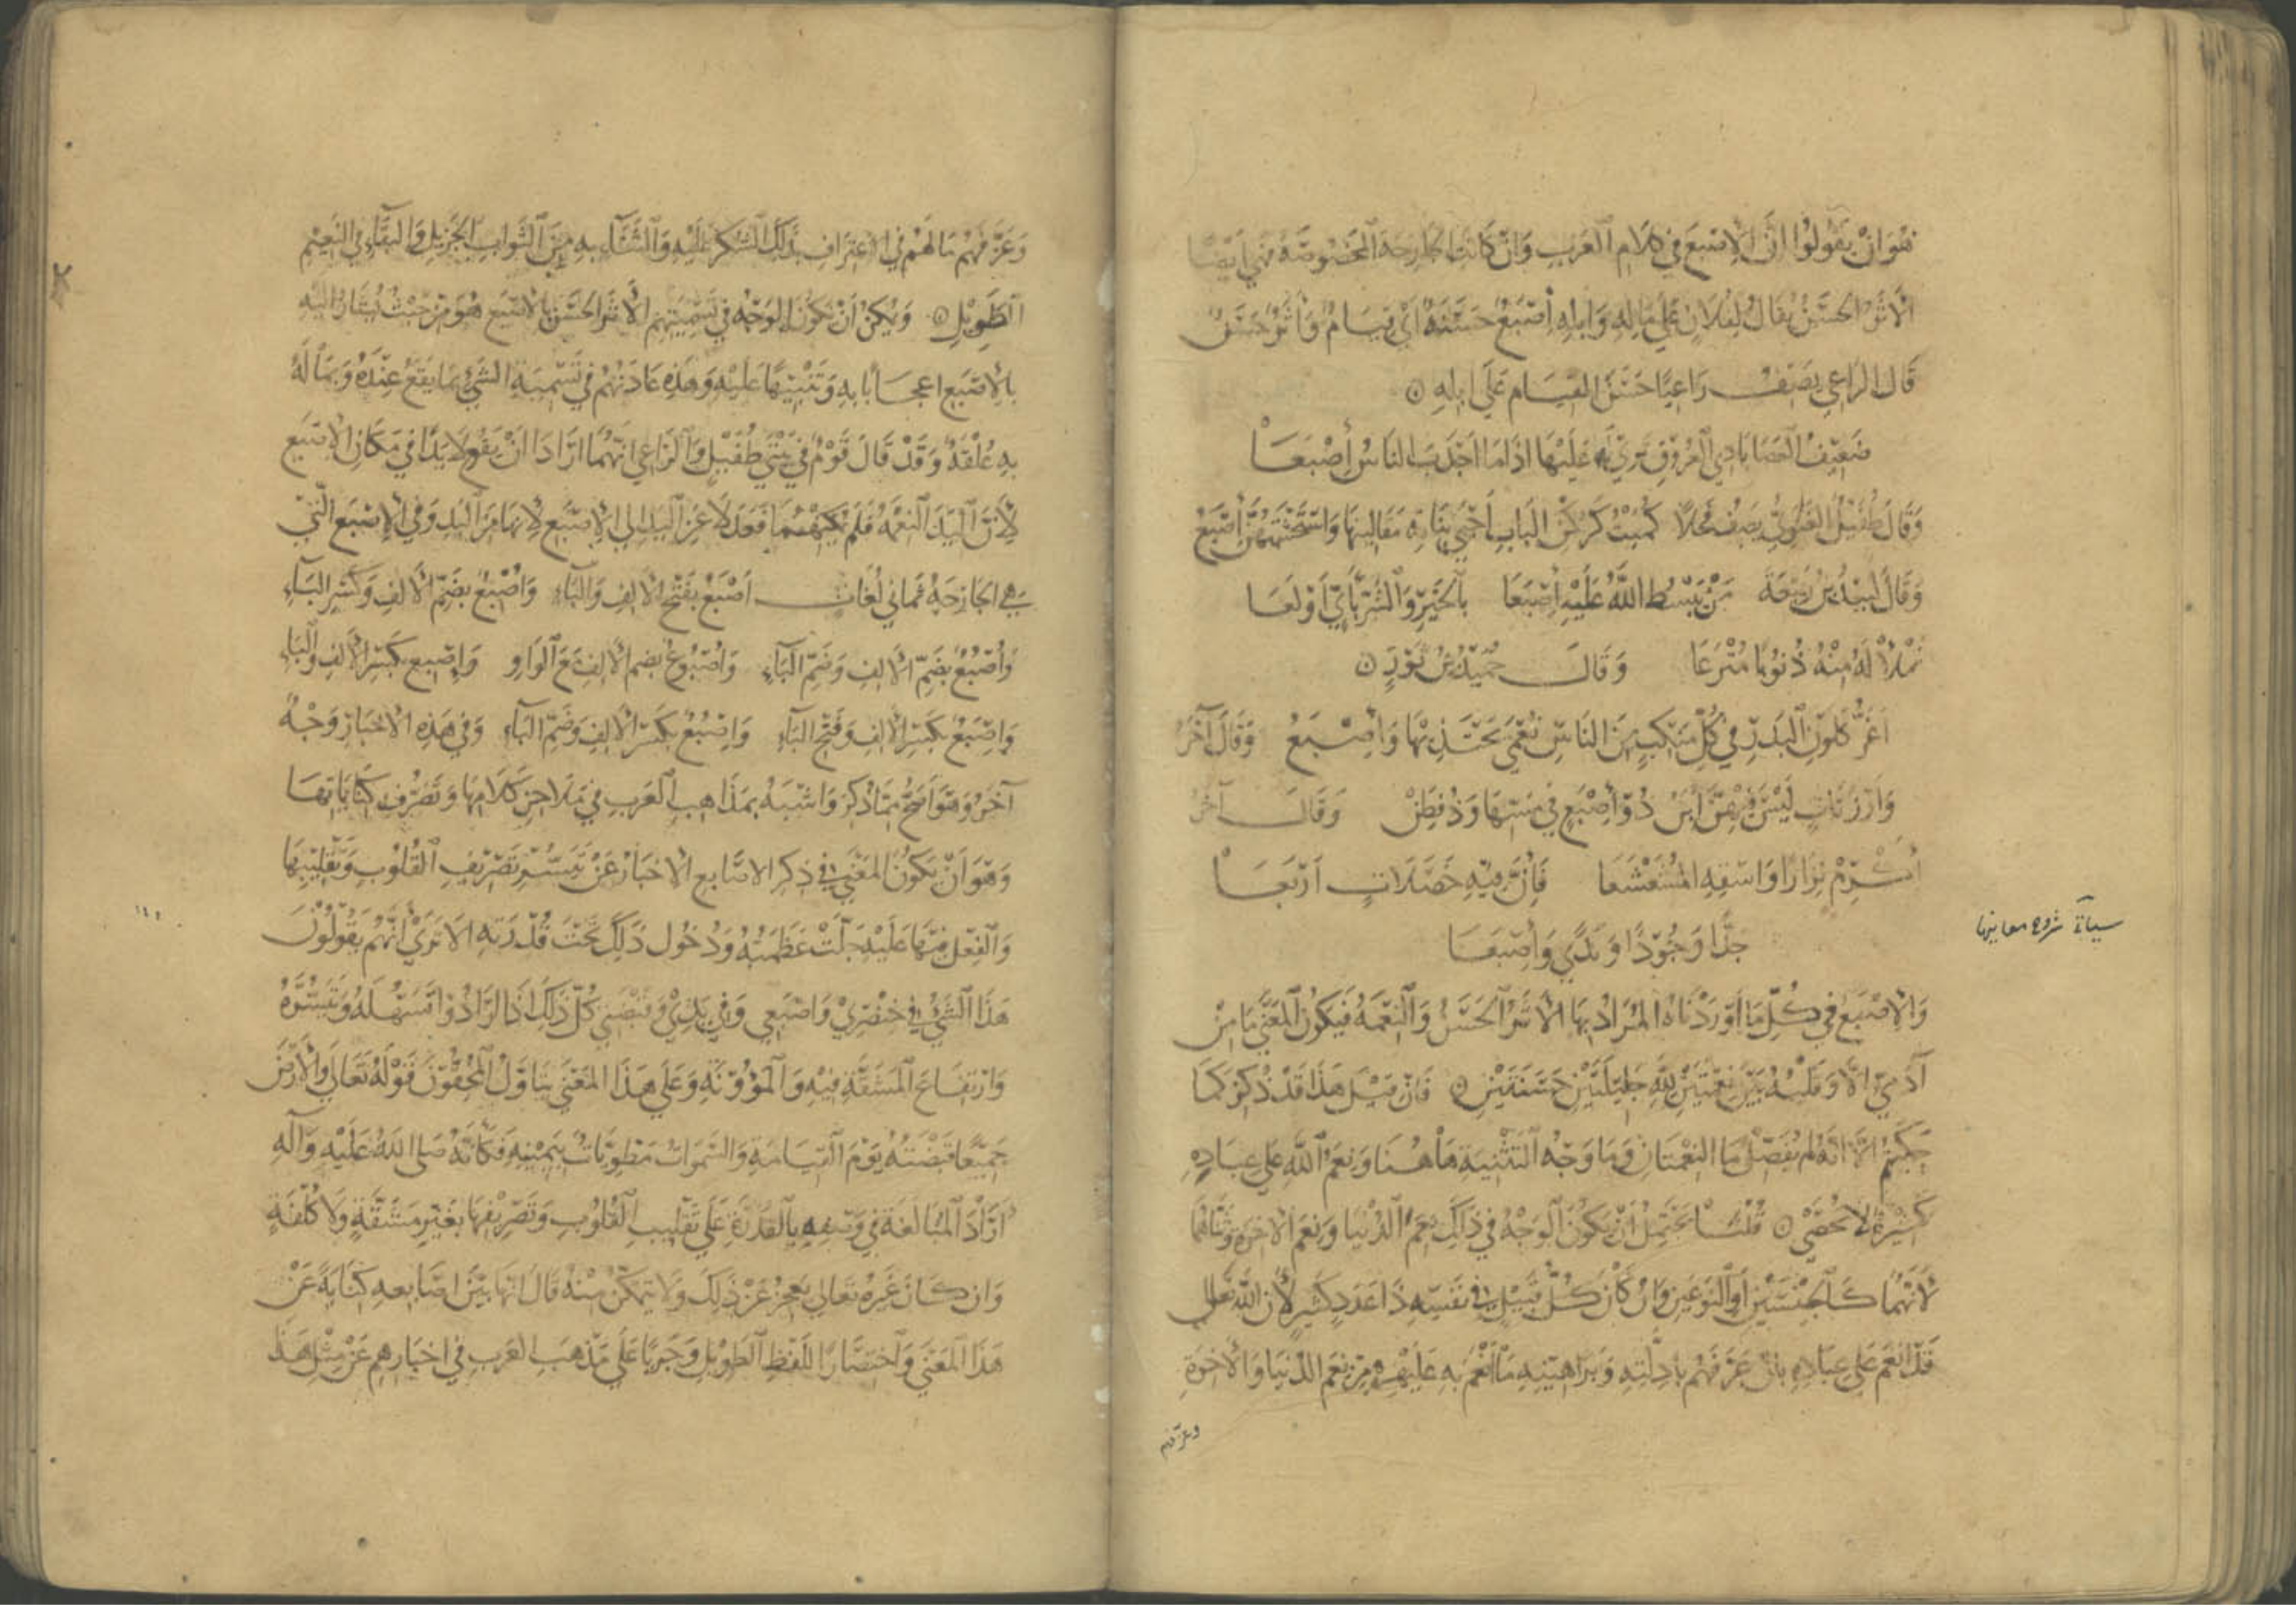 فهو ان يقولوا ان الاصبع في كلام العرب وان كانت الجارحة المخصوصة فهي ايضا
الاثر الحسن يقال لفلان على ماله وابله اصبع حسنة اي قيام واثر حسن
قال الراعي يصف راعيا حسن القيام على ابله ۞
ضعيف العصا بادي العروق ترى له عليها اذا ما اجدب الناس اصبعا
وقال طفيل الغنوي يصف فحلا كميت كركن الباب احيى بناته مقاليتها واستحشمتهن اصبع
وقال لبيد بن ربيعة من يبسط الله عليه اصبعا بالخير والشر باي اولعا
نملأ له منه ذنوبا مترعا وقال حميد بن ثور ۞
اغر كلون البدر في كل منكب من الناس نعمى يحتذيها واصبع وقال آخر
وارزنات ليس فيهن ابن ذو اصبع في مسها وذو فطن وقال آخر
اكرم نزارا واسقه المشعشعا فان فيه خصلات اربعا
جدا وجودا وندى واصبعا
والاصبع في كل ما اوردناه المراد بها الاثر الحسن والنعمة فيكون المعنى ما من
آدمي الا وقلبه بين نعمتين لله جليلتين حسنتين ۞ فان قيل هذا قد ذكر كما
حكيتم الا انه لم يفصل ما النعمتان وما وجه التثنية هاهنا ونعم الله على عباده
كثيرة لا تحصى ۞ قلنا يحتمل ان يكون الوجه في ذلك نعم الدنيا ونعم الاخرة وثناهما
لانهما كالجنسين او النوعين وان كان كل قبيل في نفسه ذا عدد كثير لان الله تعالى
قد انعم على عباده بان عرفهم بادلته وبراهينه ما انعم به عليهم من نعم الدنيا والاخرة
وعرفهم
سيأتي شروح معانيها
وعرفهم ما لهم في الاعتراف بذلك والشكر عليه والثناء به من الثواب الجزيل والبقاء في النعيم
الطويل ۞ ويمكن ان يكون الوجه في تسميتهم الاثر الحسن بالاصبع هو من حيث يشار اليه
بالاصبع اعجابا به وتنبيها عليه وهذه عادتهم في تسمية الشيء بما يقع عنده وبما له
به علقة وقد قال قوم في بيتي طفيل والراعي انهما ارادا ان يقولا يدا في مكان الاصبع
لان اليد النعمة فلم يمكنهما فعدلا عن اليد الى الاصبع لانها من اليد وفي الاصبع التي
هي الجارحة ثماني لغات اصبع بفتح الالف والباء واصبع بضم الالف وكسر الباء
واصبع بضم الالف وضم الباء واصبوع بضم الالف مع الواو واصبع بكسر الالف والباء
واصبع بكسر الالف وفتح الباء واصبع بكسر الالف وضم الباء وفي هذه الاخبار وجه
آخر وهو اوضح مما ذكر واشبه بمذاهب العرب في ملاحن كلامها وتصرف كناياتها
وهو ان يكون المعنى في ذكر الاصابع الاخبار عن تيسر تصريف القلوب وتقليبها
والفعل فيها عليه جلت عظمته ودخول ذلك تحت قدرته الا ترى انهم يقولون
هذا الشيء في خنصري واصبعي وفي يدي وقبضتي كل ذلك اذا ارادوا تسهله وتيسره
وارتفاع المشقة فيه والمؤونة وعلى هذا المعنى يتاول المحققون قوله تعالى والارض
جميعا قبضته يوم القيامة والسموات مطويات بيمينه فكانه صلى الله عليه وآله
اراد المبالغة في وصفه بالقدرة على تقليب القلوب وتصريفها بغير مشقة ولا كلفة
وان كان غيره تعالى يعجز عن ذلك ولا يتمكن منه قال انها بين اصابعه كناية عن
هذا المعنى واختصارا للفظ الطويل وجريا على مذهب العرب في اخبارهم عن مثل هذا